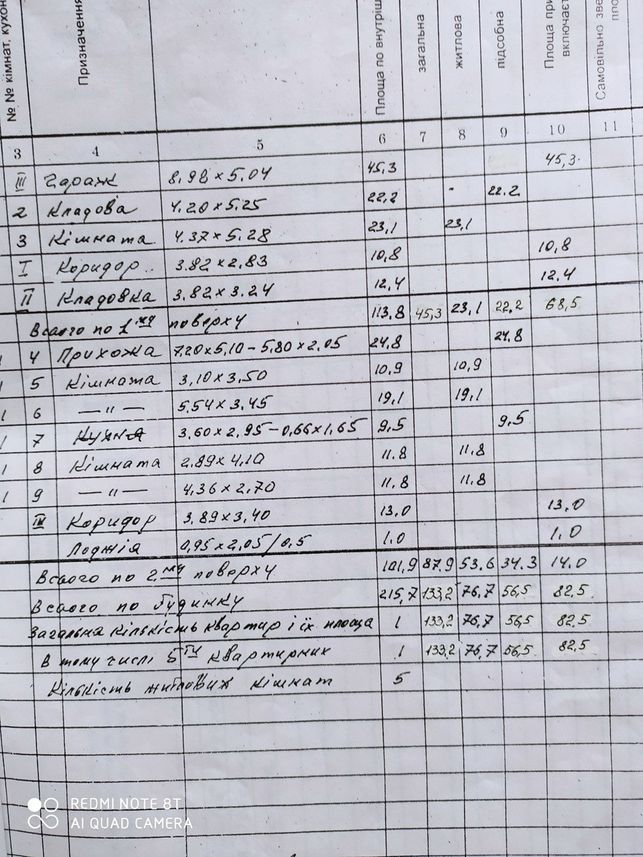 № № кімнат, кухон
Призначення
Площа по внутріш
загальна
житлова
підсобна
Площа при
включаєт
Самовільно зве
пло
3 4 5 6 7 8 9 10 11
III Гараж 8.98 x 5.04 45,3 45,3
2 Кладова 4.20 x 5.25 22,2 22.2
3 Кімната 4.37 x 5.28 23,1 23,1
I Коридор 3.82 x 2.83 10,8 10,8
II Кладовка 3.82 x 3.24 12,4 12.4
Всього по 1му поверху 113,8 45,3 23,1 22.2 68,5
4 Прихожа 7.20 x 5,10 - 5,80 x 2,05 24,8 24.8
5 Кімната 3,10 x 3,50 10,9 10,9
6 —"— 5,54 x 3,45 19,1 19,1
7 Кухня 3,60 x 2,95 - 0,66 x 1,65 9,5 9,5
8 Кімната 2,89 x 4,10 11,8 11,8
9 —"— 4,36 x 2,70 11,8 11,8
IV Коридор 3,89 x 3,40 13,0 13.0
Лоджія 0,95 x 2,05/0,5 1,0 1.0
Всього по 2му поверху 101,9 87,9 53.6 34.3 14.0
Всього по будинку 215,7 133,2 76,7 56,5 82,5
Загальна кількість квартир і їх площа 1 133,2 76,7 56,5 82,5
В тому числі 5ти квартирних 1 133,2 76,7 56,5 82,5
Кількість житлових кімнат 5
REDMI NOTE 8T
AI QUAD CAMERA